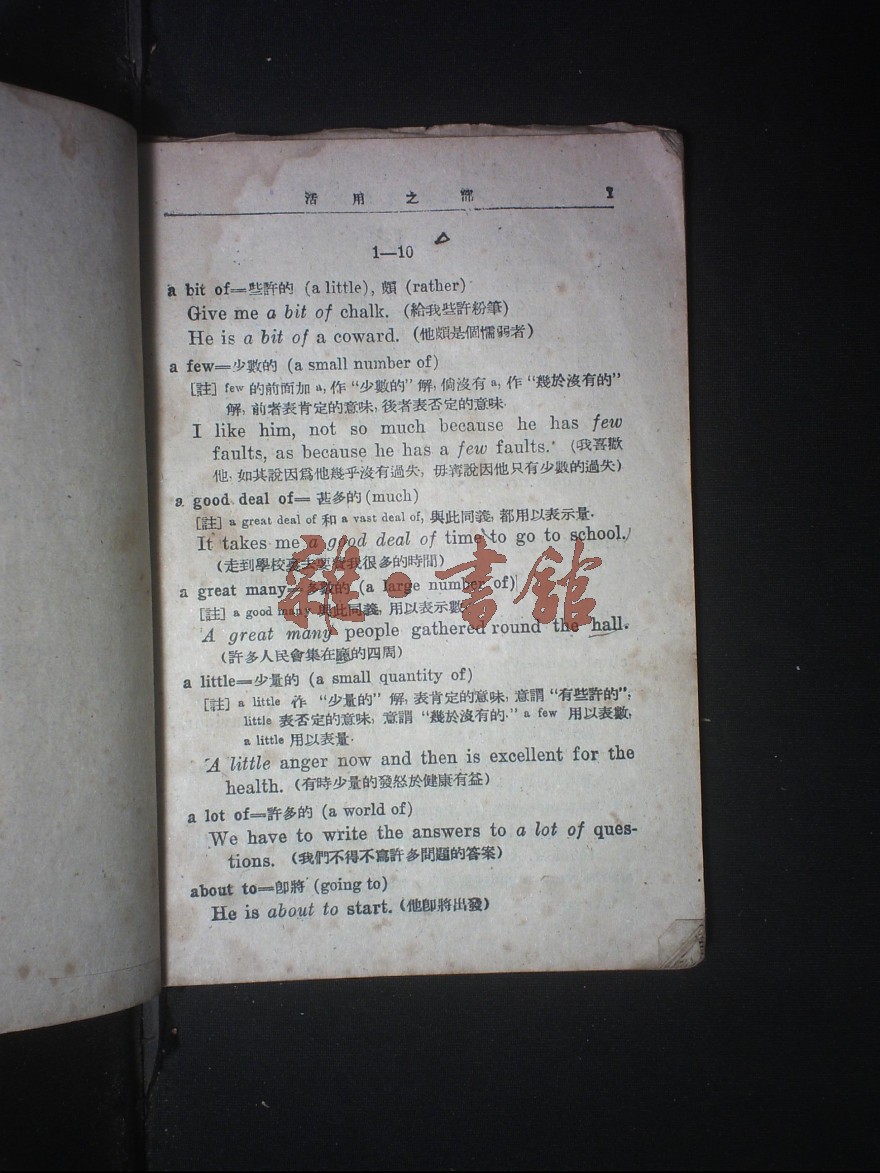 活用之部 1
1—10
a bit of=些許的 (a little), 頗 (rather)
Give me a bit of chalk. (給我些許粉筆)
He is a bit of a coward. (他頗是個懦弱者)
a few=少數的 (a small number of)
[註] few 的前面加 a, 作 “少數的” 解, 倘沒有 a, 作 “幾於沒有的”
解, 前者表肯定的意味, 後者表否定的意味.
I like him, not so much because he has few
faults, as because he has a few faults. (我喜歡
他, 如其說因爲他幾乎沒有過失, 毋寧說因他只有少數的過失)
a good deal of= 甚多的 (much)
[註] a great deal of 和 a vast deal of, 與此同義, 都用以表示量.
It takes me a good deal of time to go to school.
(走到學校裏去要費我很多的時間)
a great many=多數的 (a large number of)
[註] a good many 與此同義, 用以表示數.
A great many people gathered round the hall.
(許多人民會集在廳的四周)
a little=少量的 (a small quantity of)
[註] a little 作 “少量的” 解, 表肯定的意味, 意謂 “有些許的”,
little 表否定的意味, 意謂 “幾於沒有的.” a few 用以表數,
a little 用以表量.
A little anger now and then is excellent for the
health. (有時少量的發怒於健康有益)
a lot of=許多的 (a world of)
We have to write the answers to a lot of ques-
tions. (我們不得不寫許多問題的答案)
about to=卽將 (going to)
He is about to start. (他卽將出發)
雜·書館